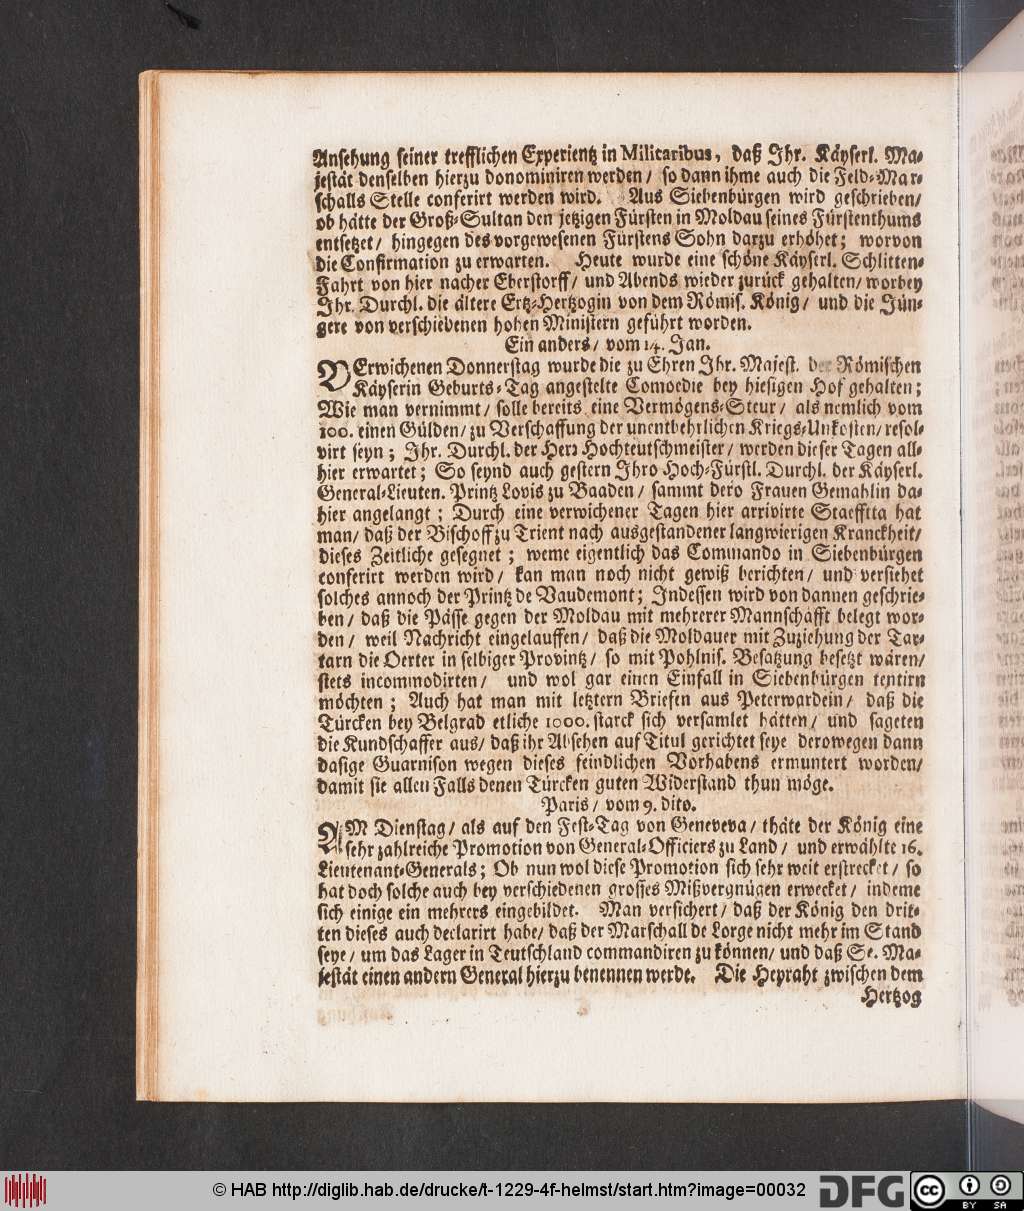 Ansehung seiner trefflichen Experientz in Militaribus, daß Ihr. Käyserl. Ma-
jestät denselben hierzu donominiren werden / so dann ihme auch die Feld-Mar-
schalls Stelle conferirt werden wird. Aus Siebenbürgen wird geschrieben/
ob hätte der Groß-Sultan den jetzigen Fürsten in Moldau seines Fürstenthums
entsetzet/ hingegen des vorgewesenen Fürstens Sohn darzu erhöhet; worvon
die Confirmation zu erwarten. Heute wurde eine schöne Käyserl. Schlitten-
Fahrt von hier nacher Eberstorff/ und Abends wieder zurück gehalten/ worbey
Ihr. Durchl. die ältere Ertz-Hertzogin von dem Römis. König/ und die Jün-
gere von verschiedenen hohen Ministern geführt worden.
Ein anders/ vom 14. Jan.
VErwichenen Donnerstag wurde die zu Ehren Ihr. Majest. der Römischen
Käyserin Geburts-Tag angestelte Comoedie bey hiesigen Hof gehalten;
Wie man vernimmt/ solle bereits eine Vermögens-Steur/ als nemlich vom
100. einen Gülden/ zu Verschaffung der unentbehrlichen Kriegs-Unkosten/ resol-
virt seyn; Ihr. Durchl. der Herr Hochteutschmeister/ werden dieser Tagen all-
hier erwartet; So seynd auch gestern Ihro Hoch-Fürstl. Durchl. der Käyserl.
General-Lieuten. Printz Lovis zu Baaden/ sammt dero Frauen Gemahlin da-
hier angelangt; Durch eine verwichener Tagen hier arrivirte Staefftta hat
man/ daß der Bischoff zu Trient nach ausgestandener langwierigen Kranckheit/
dieses Zeitliche gesegnet; weme eigentlich das Commando in Siebenbürgen
conferirt werden wird/ kan man noch nicht gewiß berichten/ und versiehet
solches annoch der Printz de Vaudemont; Indessen wird von dannen geschrie-
ben/ daß die Pässe gegen der Moldau mit mehrerer Mannschafft belegt wor-
den/ weil Nachricht eingelauffen/ daß die Moldauer mit Zuziehung der Tar-
tarn die Oerter in selbiger Provintz/ so mit Pohlnis. Besatzung besetzt wären/
stets incommodirten/ und wol gar einen Einfall in Siebenbürgen tentirn
möchten; Auch hat man mit letztern Briefen aus Peterwardein/ daß die
Türcken bey Belgrad etliche 1000. starck sich versamlet hätten/ und sageten
die Kundschaffer aus/ daß ihr Absehen auf Titul gerichtet seye derowegen dann
dasige Guarnison wegen dieses feindlichen Vorhabens ermuntert worden/
damit sie allen Falls denen Türcken guten Widerstand thun möge.
Paris/ vom 9. dito.
AM Dienstag/ als auf den Fest-Tag von Geneveva/ thäte der König eine
sehr zahlreiche Promotion von General-Officiers zu Land/ und erwählte 16.
Lieutenant-Generals; Ob nun wol diese Promotion sich sehr weit erstrecket/ so
hat doch solche auch bey verschiedenen grosses Mißvergnügen erwecket/ indeme
sich einige ein mehrers eingebildet. Man versichert/ daß der König den drit-
ten dieses auch declarirt habe/ daß der Marschall de Lorge nicht mehr im Stand
seye/ um das Lager in Teutschland commandiren zu können/ und daß Se. Ma-
jestät einen andern General hierzu benennen werde. Die Heyraht zwischen dem
Hertzog
© HAB http://diglib.hab.de/drucke/t-1229-4f-helmst/start.htm?image=00032
DFG
cc BY SA